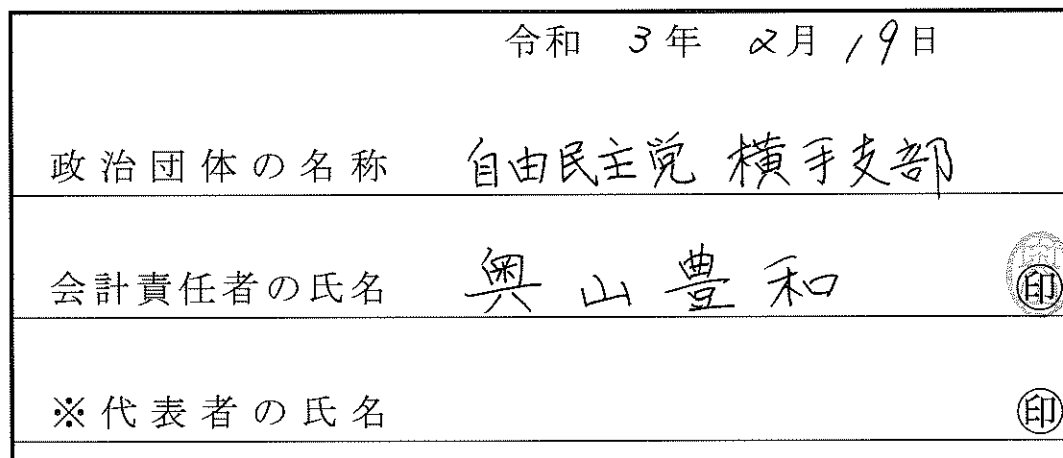 令和 3年 2月 19日
政治団体の名称 自由民主党 横手支部
会計責任者の氏名 奥山豊和 ㊞
※代表者の氏名 ㊞